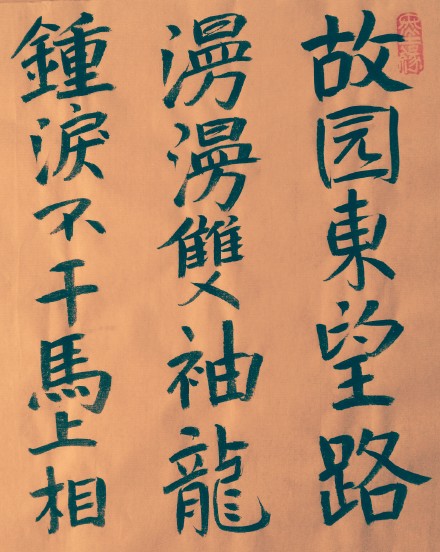 故园東望路
漫漫雙袖龍
鍾淚不干馬上相